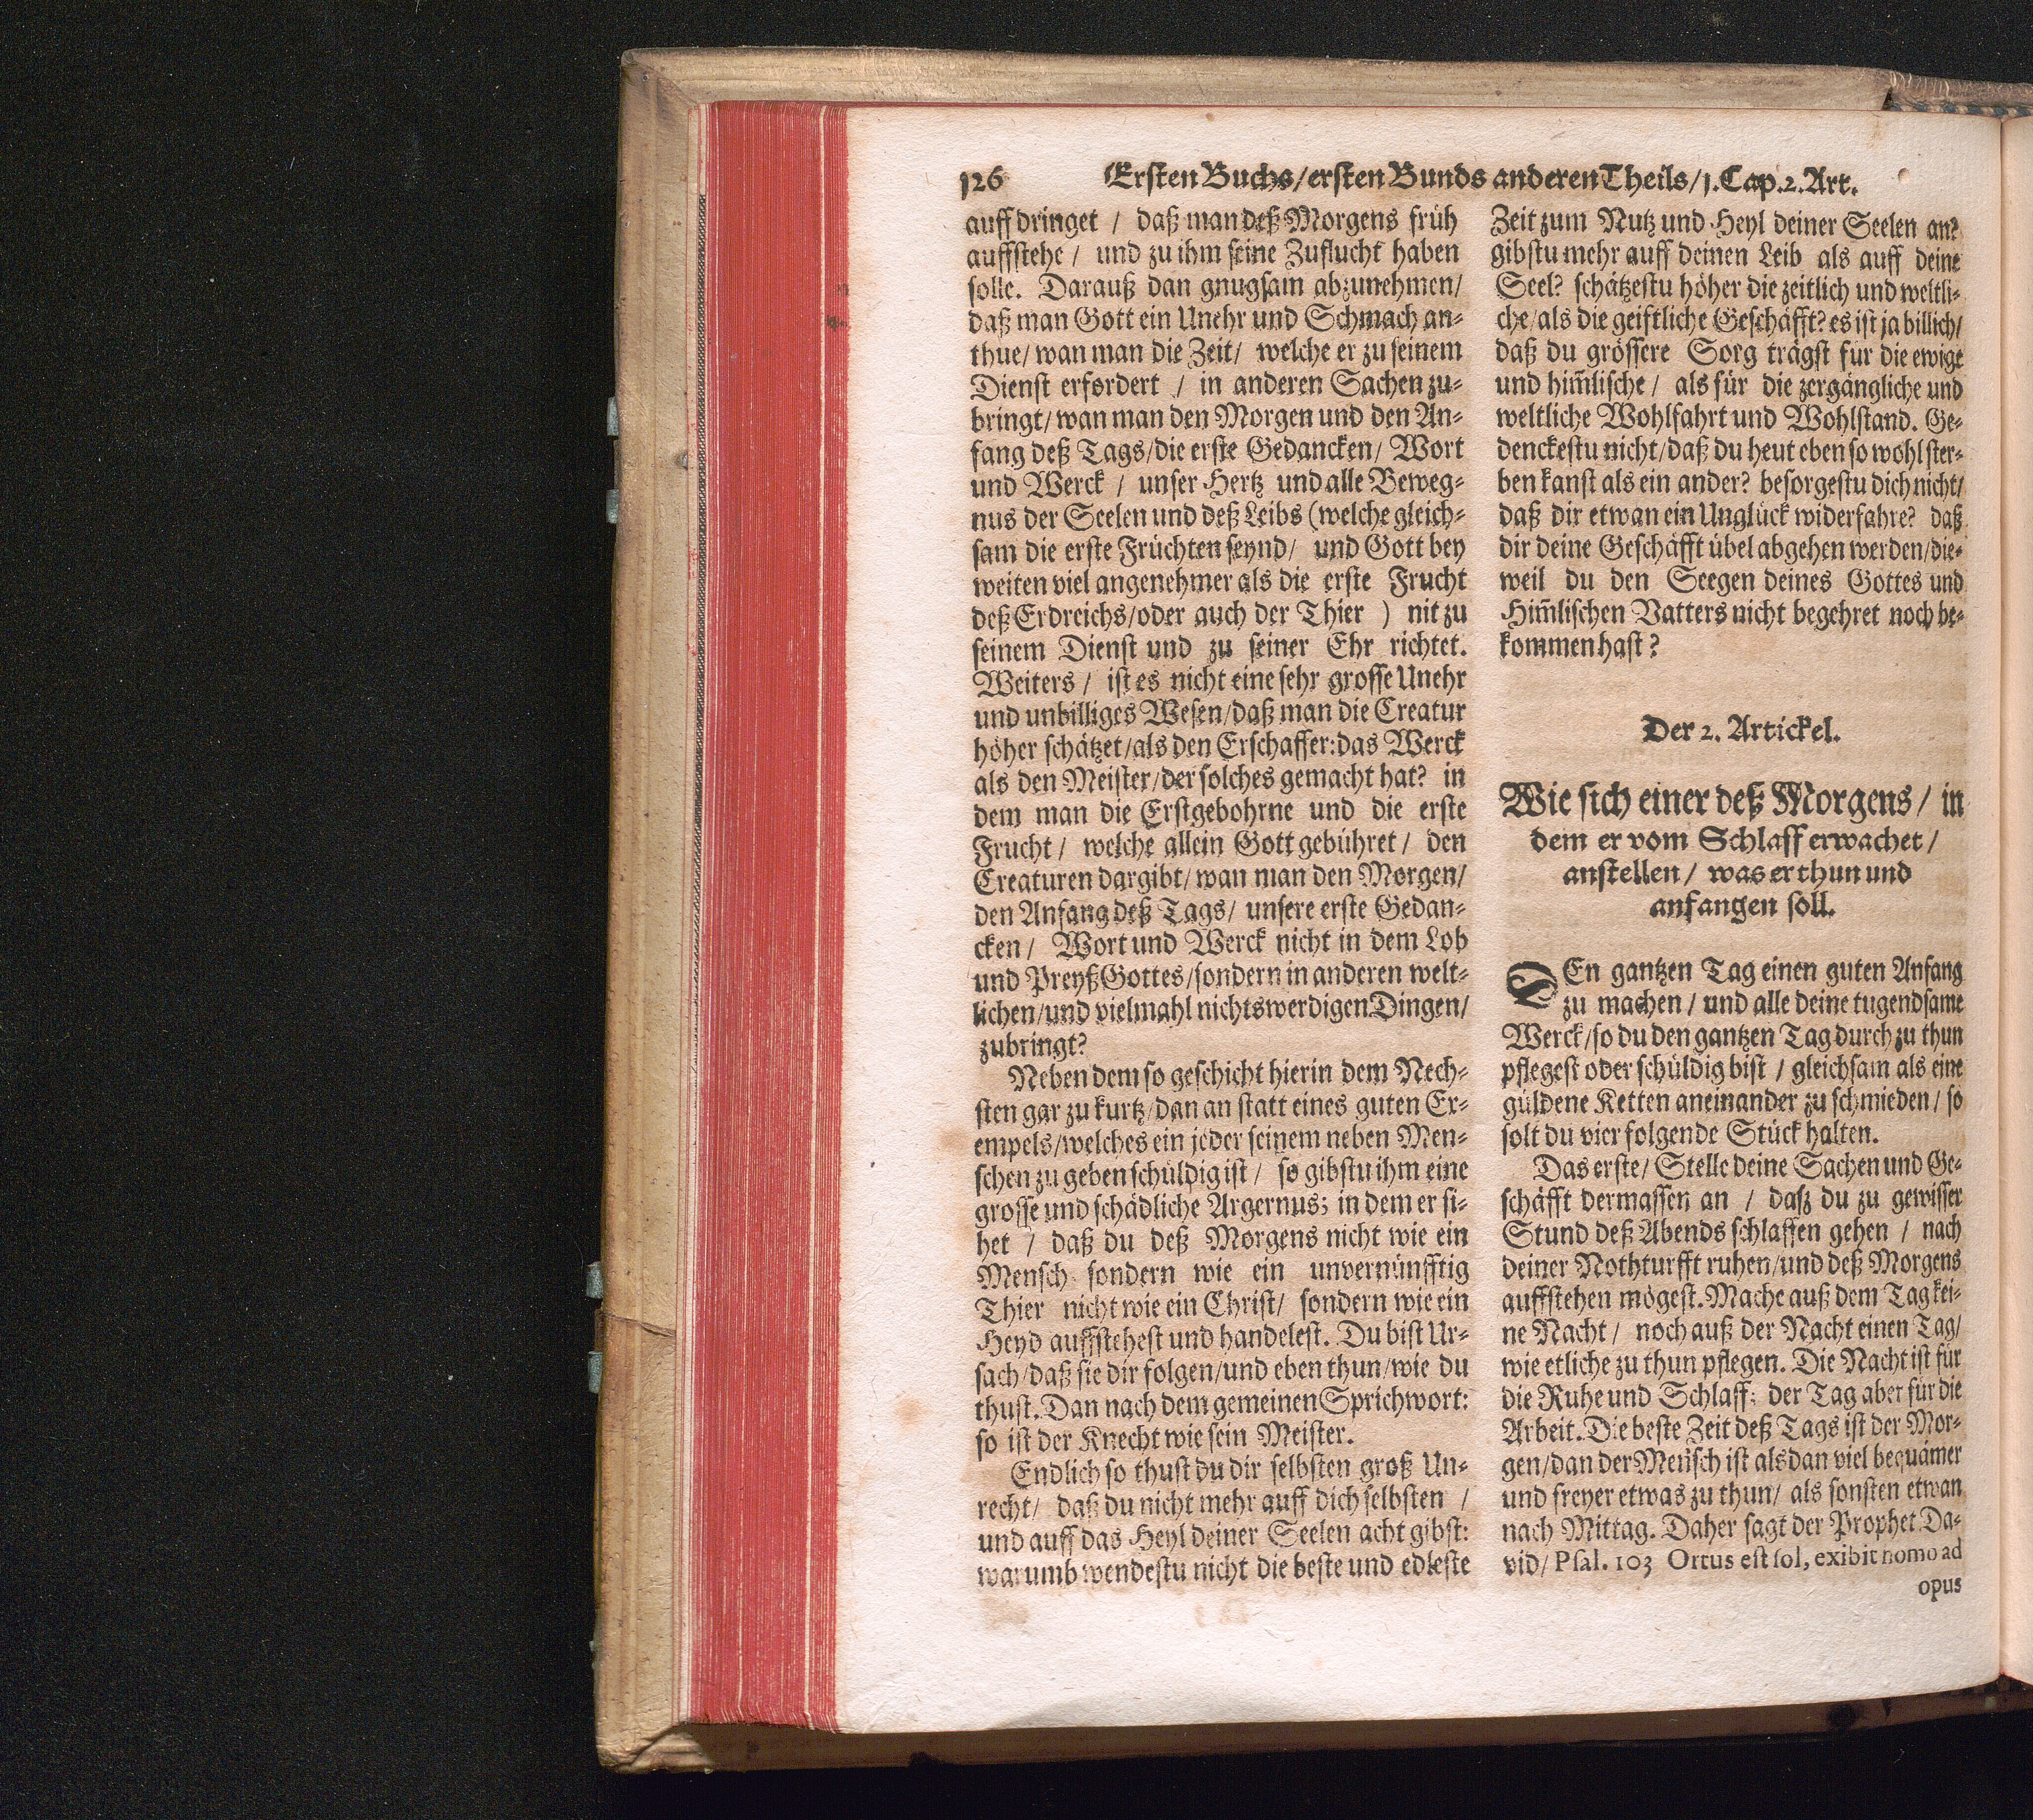 126 Ersten Buchs/ersten Bunds anderen Theils/1.Cap.2.Art.
auff dringet / daß man deß Morgens früh
auffstehe / und zu ihm seine Zuflucht haben
solle. Darauß dan gnugsam abzunehmen/
daß man Gott ein Unehr und Schmach an-
thue/wan man die Zeit/ welche er zu seinem
Dienst erfordert / in anderen Sachen zu-
bringt/wan man den Morgen und den An-
fang deß Tags/die erste Gedancken/ Wort
und Werck / unser Hertz und alle Beweg-
nus der Seelen und deß Leibs (welche gleich-
sam die erste Früchten seynd/ und Gott bey
weiten viel angenehmer als die erste Frucht
deß Erdreichs/oder auch der Thier ) nit zu
seinem Dienst und zu seiner Ehr richtet.
Weiters / ist es nicht eine sehr grosse Unehr
und unbilliges Wesen/daß man die Creatur
höher schätzet/als den Erschaffer:das Werck
als den Meister/der solches gemacht hat? in
dem man die Erstgebohrne und die erste
Frucht/ welche allein Gott gebühret/ den
Creaturen dargibt/wan man den Morgen/
den Anfang deß Tags/ unsere erste Gedan-
cken/ Wort und Werck nicht in dem Lob
und Preyß Gottes/sondern in anderen welt-
lichen/und vielmahl nichtswerdigen Dingen/
zubringt?
Neben dem so geschicht hierin dem Nech-
sten gar zu kurtz/dan an statt eines guten Ex-
empels/welches ein jeder seinem neben Men-
schen zu geben schüldig ist / so gibstu ihm eine
grosse und schädliche Argernus; in dem er si-
het / daß du deß Morgens nicht wie ein
Mensch sondern wie ein unvernünfftig
Thier nicht wie ein Christ/ sondern wie ein
Heyd auffstehest und handelest. Du bist Ur-
sach/daß sie dir folgen/und eben thun/wie du
thust. Dan nach dem gemeinen Sprichwort:
so ist der Knecht wie sein Meister.
Endlich so thust du dir selbsten groß Un-
recht/ daß du nicht mehr auff dich selbsten /
und auff das Heyl deiner Seelen acht gibst:
warumb wendestu nicht die beste und edleste
Zeit zum Nutz und Heyl deiner Seelen an?
gibstu mehr auff deinen Leib als auff deine
Seel? schätzestu höher die zeitlich und weltli-
che/als die geistliche Geschäfft? es ist ja billich/
daß du grössere Sorg trägst für die ewige
und him̃lische/ als für die zergängliche und
weltliche Wohlfahrt und Wohlstand. Ge-
denckestu nicht/daß du heut eben so wohl ster-
ben kanst als ein ander? besorgestu dich nicht/
daß dir etwan ein Unglück widerfahre? daß
dir deine Geschäfft übel abgehen werden/die-
weil du den Seegen deines Gottes und
Him̃lischen Vatters nicht begehret noch be-
kommen hast?
Der 2. Artickel.
Wie sich einer deß Morgens/ in
dem er vom Schlaff erwachet/
anstellen/ was er thun und
anfangen soll.
DEn gantzen Tag einen guten Anfang
zu machen/ und alle deine tugendsame
Werck/so du den gantzen Tag durch zu thun
pflegest oder schüldig bist / gleichsam als eine
güldene Ketten aneinander zu schmieden/ so
solt du vier folgende Stück halten.
Das erste/ Stelle deine Sachen und Ge-
schäfft dermassen an / daß du zu gewisser
Stund deß Abends schlaffen gehen / nach
deiner Nothturfft ruhen/und deß Morgens
auffstehen mögest. Mache auß dem Tag kei-
ne Nacht/ noch auß der Nacht einen Tag/
wie etliche zu thun pflegen. Die Nacht ist für
die Ruhe und Schlaff: der Tag aber für die
Arbeit. Die beste Zeit deß Tags ist der Mor-
gen/dan der Mensch ist alsdan viel bequämer
und freyer etwas zu thun/ als sonsten etwan
nach Mittag. Daher sagt der Prophet Da-
vid/ Psal. 103 Ortus est sol, exibit homo ad
opus